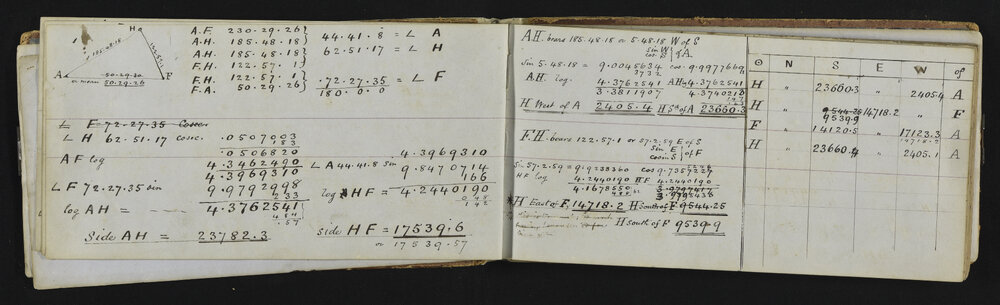 H
185.48.18
A 50.29.30 F
a mean 50.29.26
A.F 230.29.26
A.H. 185.48.18
44.41.8 = L A
A.H. 185.48.18
F.H. 122.57.1
62.51.17 = L H
F.H. 122.57.1
F.A. 50.29.26
72.27.35 = L F
180.0.0
L F 72.27.35 Cosec
L H 62.51.17 cosec. .0507003
183
.0506820
A F log 4.3462490
4.3969310
L F 72.27.35 sin 9.9792998
233
log AH = 4.3762541
484
.57
Side AH = 23782.3
4.3969310
L A 44.41.8 sin 9.8470714
166
log HF = 4.2440190
048
142
side HF = 17539.6
or 17539.57
AH bears 185.48.18 or 5.48.18 W of S
sin W
cos S of A
Sin 5.48.18 = 9.0045634 cos 9.9977669
3732
AH log. 4.3762541 AH 4.3762541
3.3811907 4.3740210
H West of A 2405.4 H Sth of A 23660.3
F'H bears 122.57.1 or 57.2.59 E of S
Sin E
cosin S of F
Sin 57.2.59 = 9.9238360 cos 9.7357227
HF log 4.2440190 HF 4.2440190
4.1678550 3.9797417
3.9795436
H East of F 14718.2 H South of F 9544.25
H South of F 9539.9
⊙ N S E W of
H " 23660.3 " 2405.4 A
H " 9544.25 14718.2 " F
9539.9
F " 14120.5 " 17123.3 A
14718.2
H " 23660.4 " 2405.1 A